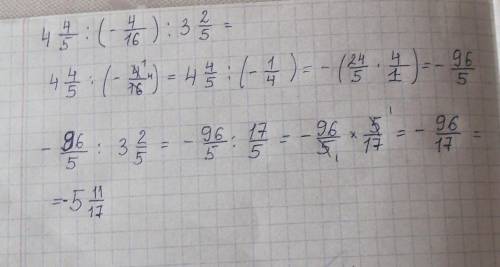 4 4/5 : (- 4/16) : 3 2/5 =
4 4/5 : (- 4̶¹/1̶6̶₄) = 4 4/5 : (- 1/4) = - (24/5 · 4/1) = - 96/5
- 96/5 : 3 2/5 = - 96/5 : 17/5 = - 96/5̶₁ × 5̶¹/17 = - 96/17 =
= - 5 11/17